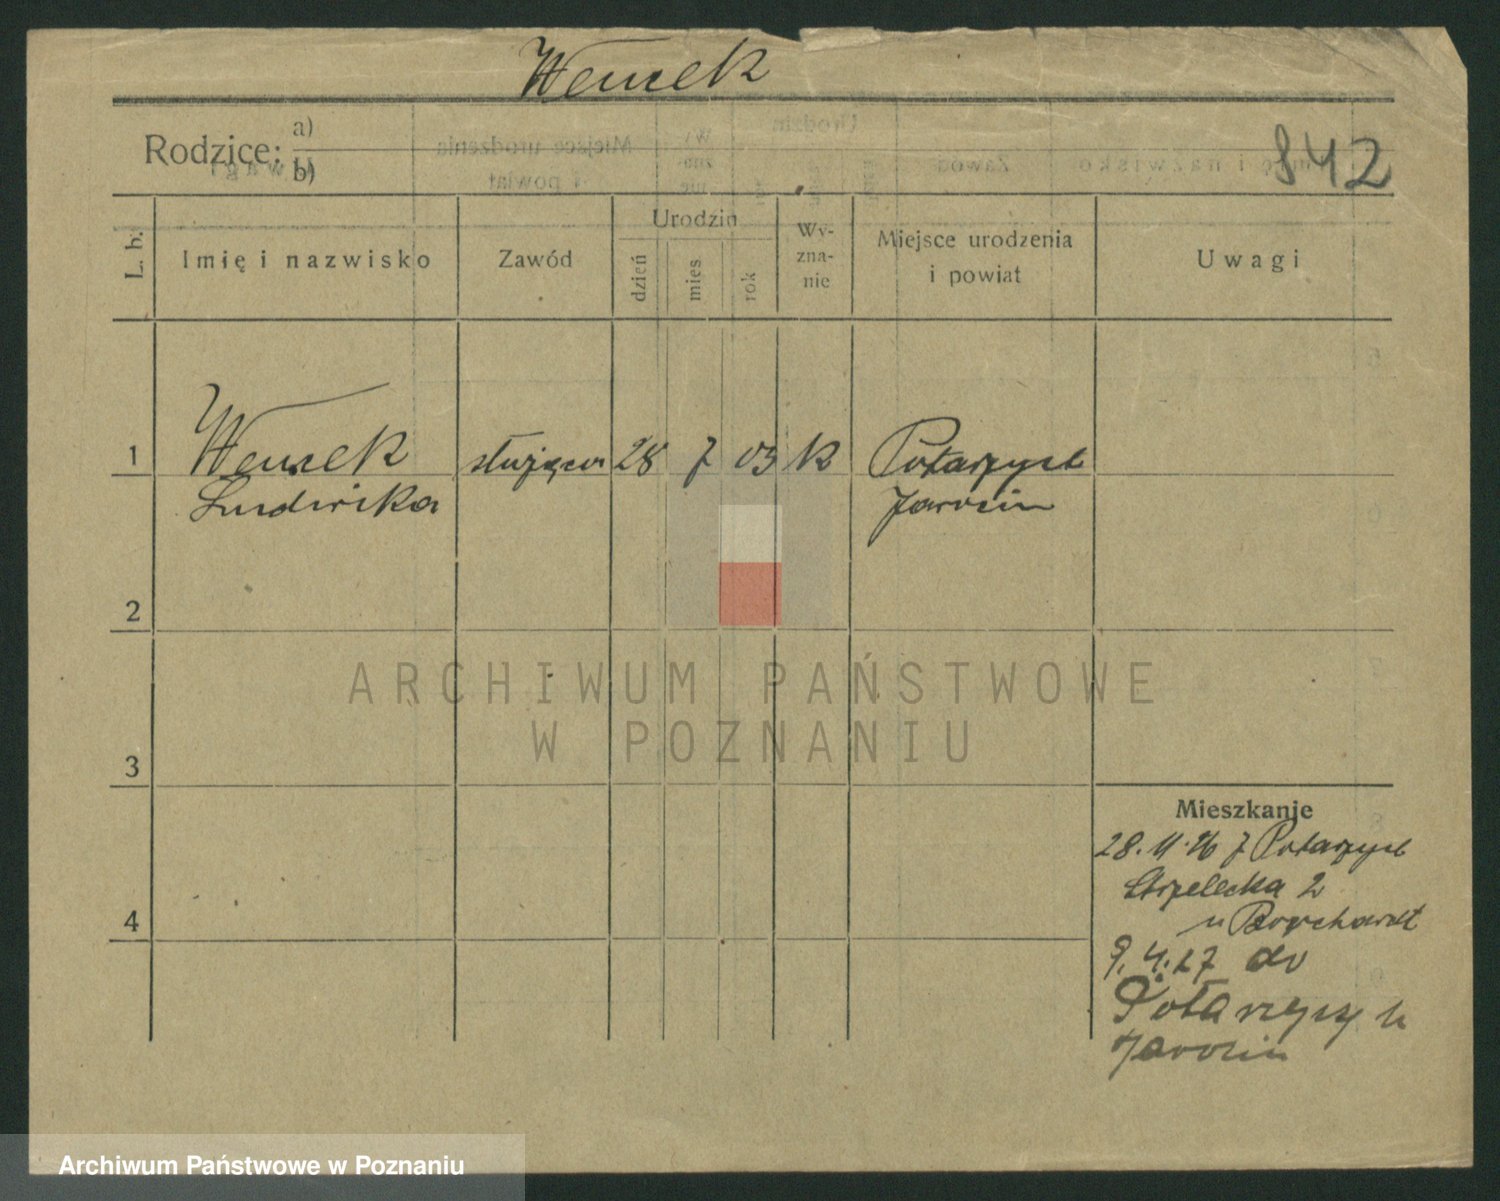 Wencek
Rodzice: a)
b)
842
L. b.
Imię i nazwisko
Zawód
Urodzin
dzień
mies
rok
Wy-
zna-
nie
Miejsce urodzenia
i powiat
Uwagi
1
Wencek służąca 28 7 03 k Potarzyce
Ludwika Jarocin
2
3
4
Mieszkanie
28.11.26 z Potarzyce
Strzelecka 2
u Borchardt
9.4.27 do
Jarocin
ARCHIWUM PAŃSTWOWE
W POZNANIU
Archiwum Państwowe w Poznaniu